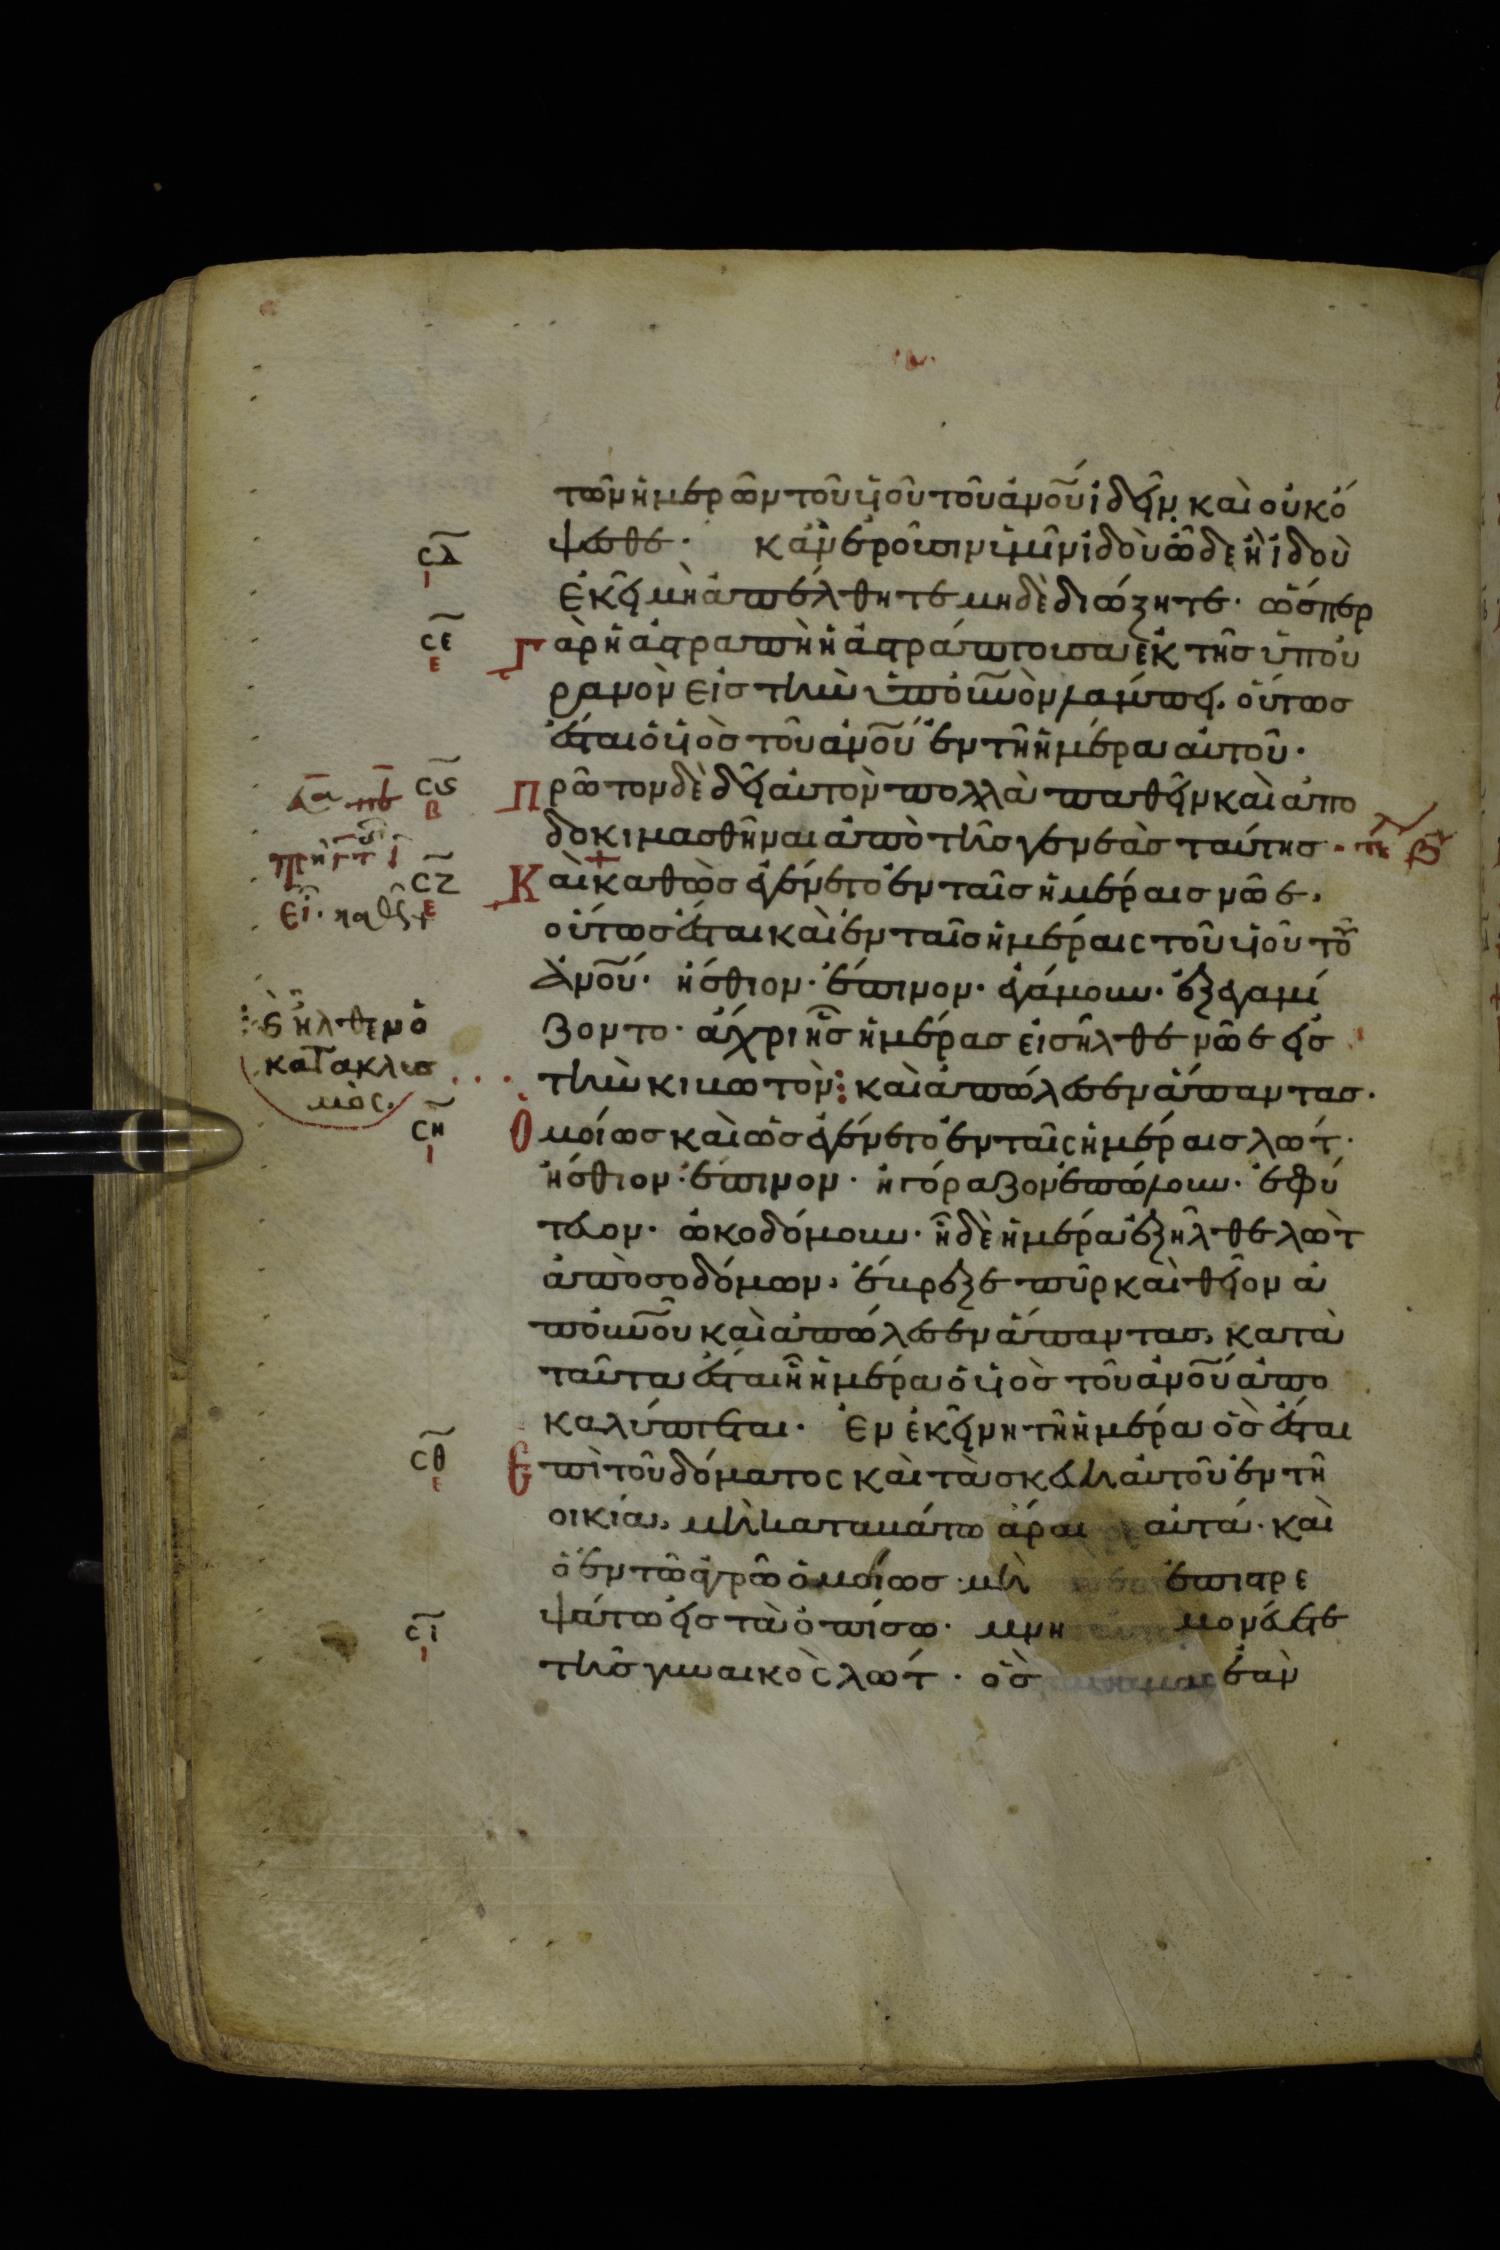 τῶν ἡμερῶν τοῦ υἱοῦ τοῦ ἀνοῦ ἰδεῖν καὶ οὐκ ό
ψεσθε· κἂν εροῖσιν ὑμῖν ἰδοὺ ὧδε ἢ ἰδοὺ
σδ
ι
ἐκεῖ μὴ ἀπέλθητε μηδὲ διώξητε· ὥσπερ
σε
ε
Γὰρ ἡ ἀστραπὴ ἡ ἀστράπτουσα ἐκ τῆς ὑπ οὐ
ρανὸν εἰς τὴν ὑπ οὐνὸν λάμπει, οὕτως
ἔσται ὁ υἱὸς τοῦ ἀνοῦ ἐν τῆ ἡμέρα αὐτοῦ·
σς
β
Πρῶτον δὲ δεῖ αὐτὸν πολλὰ παθεῖν καὶ ἀπο
δοκιμασθῆναι ἀπὸ τῆς γενεᾶς ταύτης·
σζ
ε
Καὶ καθὼς ἐγένετο ἐν ταῖς ἡμέραις νῶε,
οὕτως ἔσται καὶ ἐν ταῖς ἡμέραις τοῦ υἱοῦ τοῦ
ἀνοῦ· ἤσθιον· ἔπινον· ἐγάμουν· ἐξεγαμί
ζοντο· ἄχρι ἧς ἡμέρας εἰσῆλθε νῶε εἰς
τὴν κιβωτὸν: καὶ ἀπώλεσεν ἅπαντας·
ἦλθεν ὁ
κατακλυσ
μὸς.
ση
ι
Ὁμοίως καὶ ὡς ἐγένετο ἐν ταῖς ἡμέραις λώτ·
ἤσθιον· ἔπινον· ἠγόραζον ἐπώλουν· ἐφύ
τευον· ὠκοδόμουν· ἧ δὲ ἡμέρα ἐξῆλθε λὼτ
ἀπὸ σοδόμων, ἔβρεξε πῦρ καὶ θεῖον ἀ
π οὐνοῦ καὶ ἀπώλεσεν ἅπαντας, κατὰ
ταῦτα ἔσται ἧ ἡμέρα ὁ υἱὸς τοῦ ἀνοῦ ἀπο
καλύπτεται· Ἐν ἐκείνη τῆ ἡμέρα ὃς ἔσται
σθ
ε
Ἐπὶ τοῦ δόματος καὶ τὰ σκεύη αὐτοῦ ἐν τῆ
οικία, μὴ καταβάτω ἆραι αὐτά· καὶ
ὁ ἐν τῶ ἀγρῶ ὁμοίως· μὴ ἐπιστρε
ψάτω εἰς τὰ ὀπίσω· μνη μονεύετε
σι
ι
τῆς γυναικὸς λώτ· ὃς ἐὰν